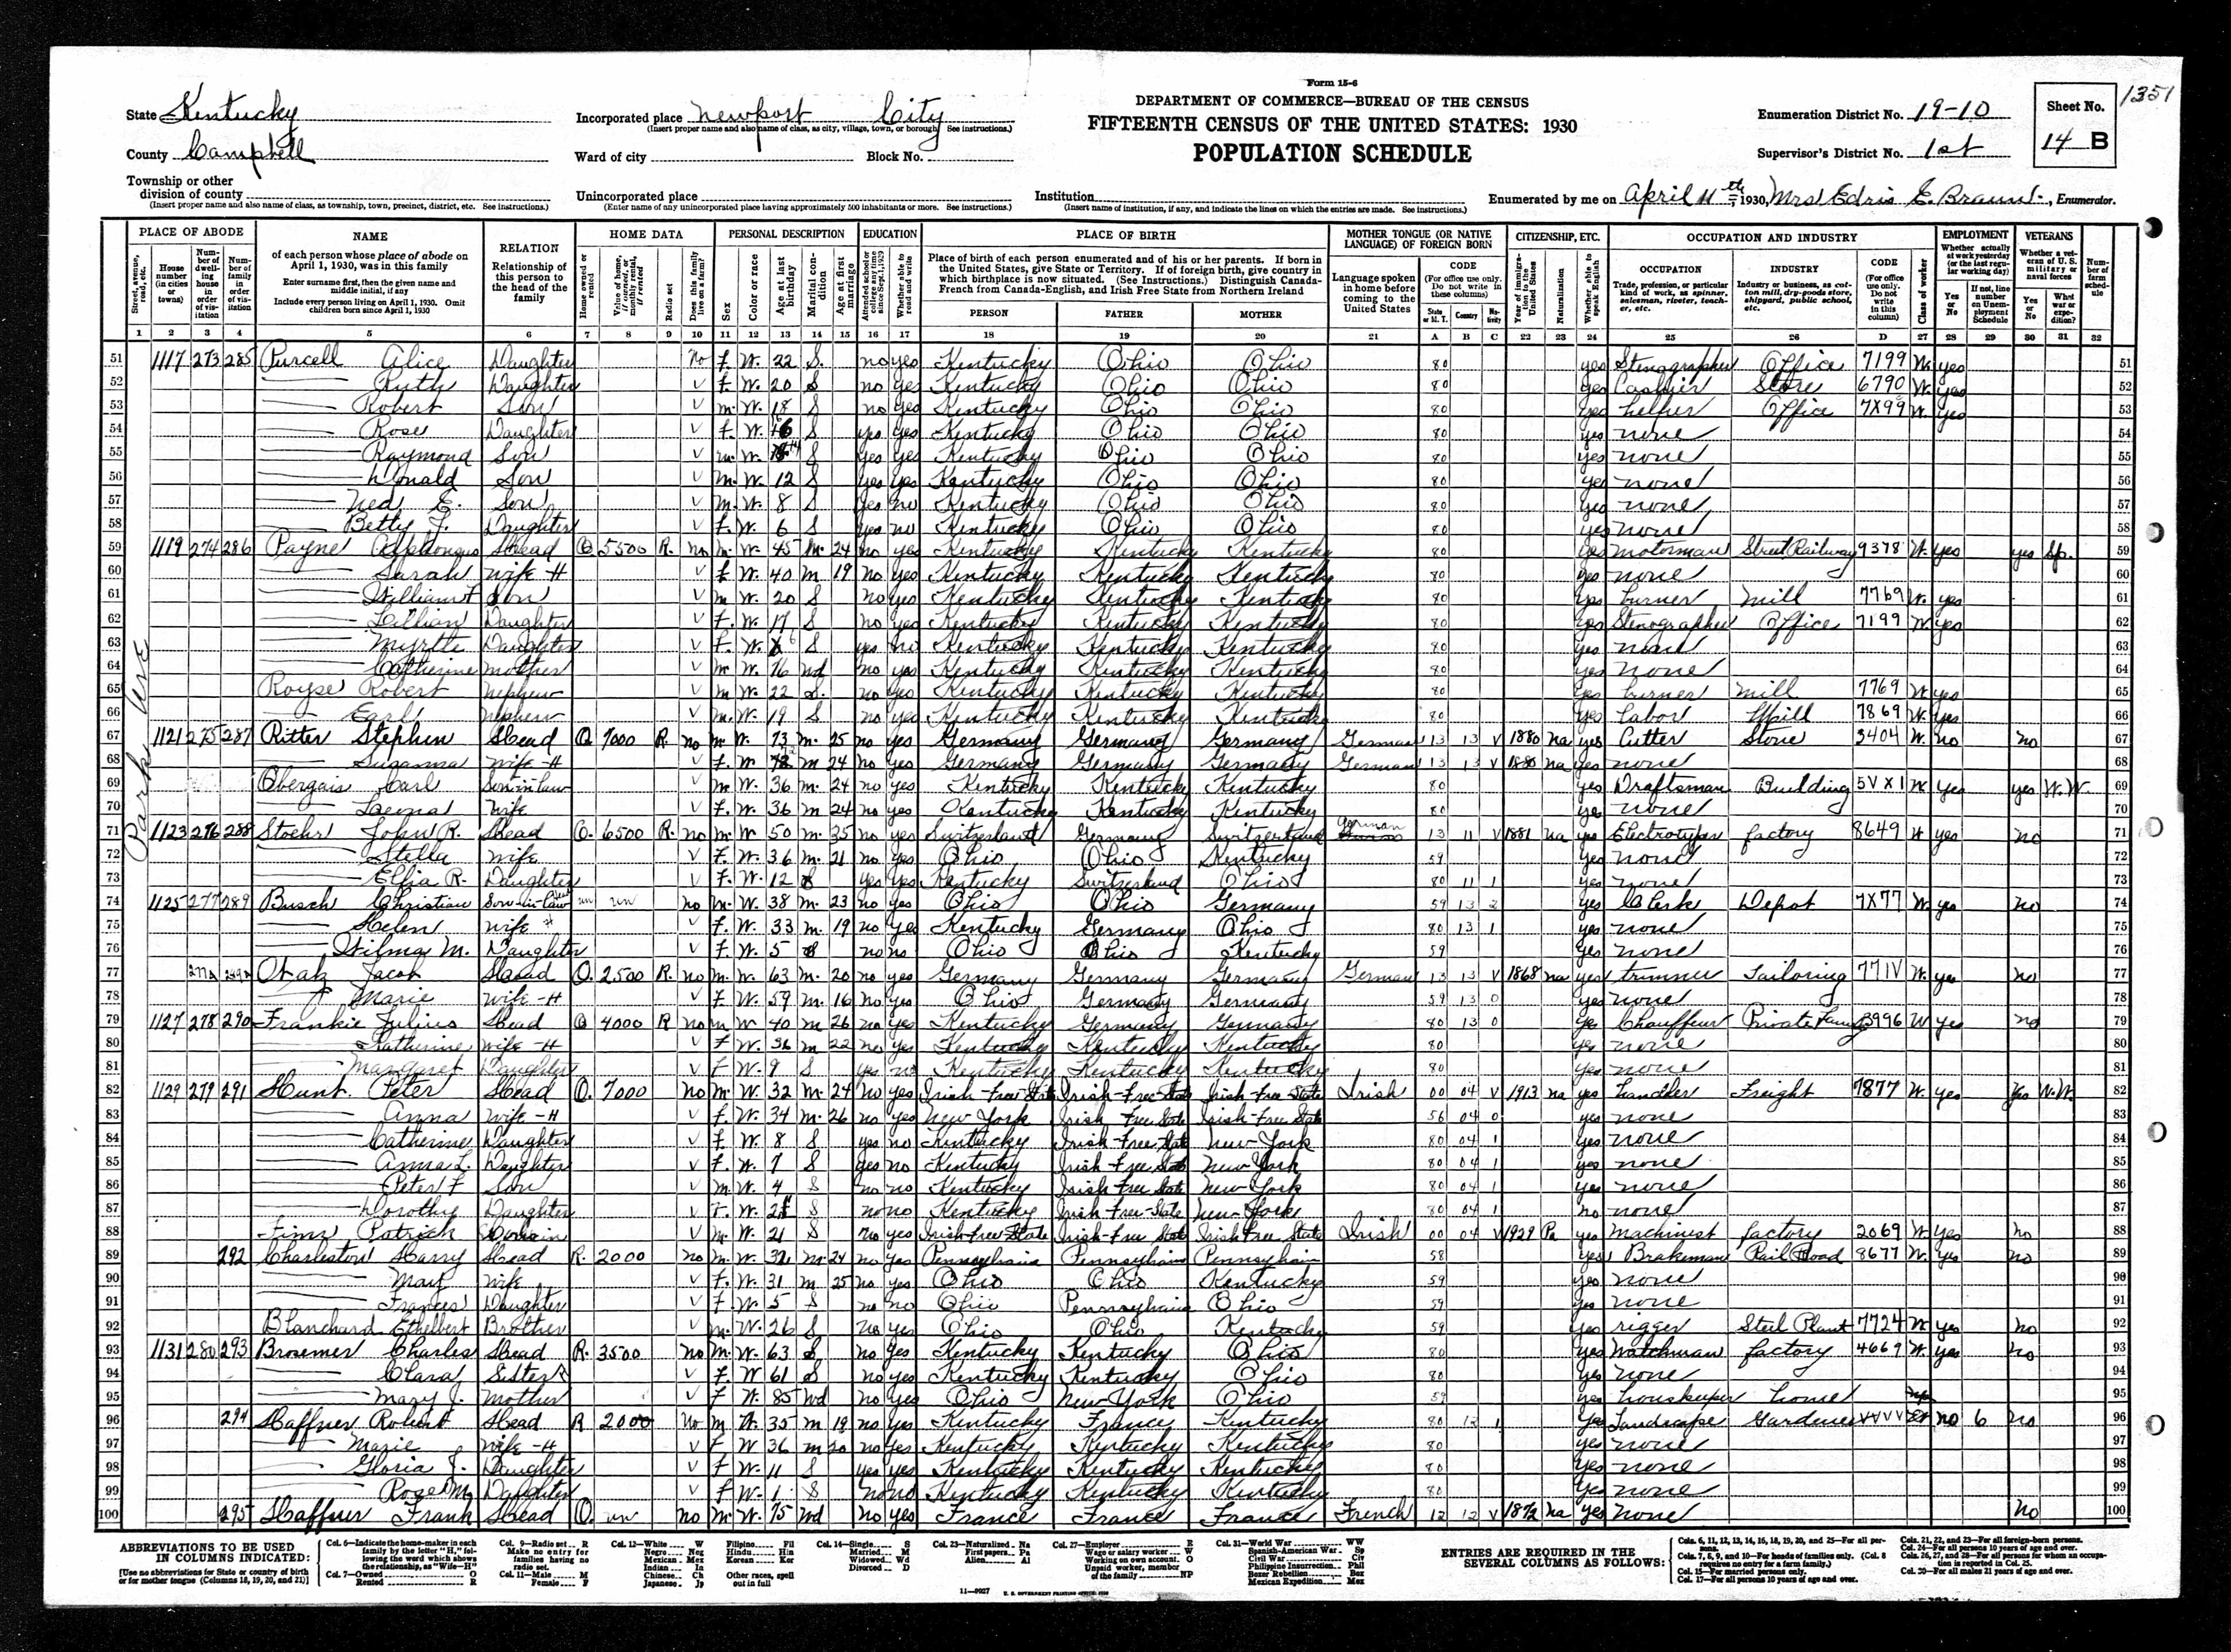 Form 15-6
1351
State Kentucky
Incorporated place Newport City
(Insert proper name and also name of class, as city, village, town, or borough. See instructions.)
DEPARTMENT OF COMMERCE—BUREAU OF THE CENSUS
FIFTEENTH CENSUS OF THE UNITED STATES: 1930
POPULATION SCHEDULE
Enumeration District No. 19-10
Sheet No.
14 B
County Campbell
Ward of city Block No.
Supervisor's District No. 1st
Township or other division of county
(Insert proper name and also name of class, as township, town, precinct, district, etc. See instructions.)
Unincorporated place
(Enter name of any unincorporated place having approximately 500 inhabitants or more. See instructions.)
Institution
(Insert name of institution, if any, and indicate the lines on which the entries are made. See instructions.)
Enumerated by me on April 11th, 1930, Mrs Edris E. Braun, Enumerator.
PLACE OF ABODE NAME RELATION HOME DATA PERSONAL DESCRIPTION EDUCATION PLACE OF BIRTH MOTHER TONGUE (OR NATIVE LANGUAGE) OF FOREIGN BORN CITIZENSHIP, ETC. OCCUPATION AND INDUSTRY EMPLOYMENT VETERANS
1 2 3 4 5 6 7 8 9 10 11 12 13 14 15 16 17 18 19 20 21 A B C 22 23 24 25 26 D 27 28 29 30 31 32
Park Ave
51 1117 273 285 Purcell Alice Daughter No f. W. 22 S. no yes Kentucky Ohio Ohio 80 yes Stenographer Office 7199 W. yes 51
52 Ruth Daughter V f. W. 20 S no yes Kentucky Ohio Ohio 80 yes Cashier Store 6790 W. yes 52
53 Robert Son V m. W. 18 S no yes Kentucky Ohio Ohio 80 yes helper Office 7X99 W. yes 53
54 Rose Daughter V f. W. 16 S yes yes Kentucky Ohio Ohio 80 yes none 54
55 Raymond Son V m. W. 14 S yes yes Kentucky Ohio Ohio 80 yes none 55
56 Donald Son V m. W. 12 S yes yes Kentucky Ohio Ohio 80 yes none 56
57 Ned E. Son V m. W. 8 S yes no Kentucky Ohio Ohio 80 yes none 57
58 Betty J. Daughter V f. W. 6 S yes no Kentucky Ohio Ohio 80 yes none 58
59 1119 274 286 Payne Alphonsus Head O 5500 R. no m. W. 45 M. 24 no yes Kentucky Kentucky Kentucky 80 yes motorman Street Railway 9378 W. yes yes Sp. 59
60 Sarah wife-H V f W. 40 m 19 no yes Kentucky Kentucky Kentucky 80 yes none 60
61 William F Son V m W. 20 S no yes Kentucky Kentucky Kentucky 80 yes burner mill 7769 W. yes 61
62 Lillian Daughter V f. W. 17 S no yes Kentucky Kentucky Kentucky 80 yes Stenographer Office 7199 W yes 62
63 Myrtle Daughter V f. W. 6 S yes no Kentucky Kentucky Kentucky 80 yes none 63
64 Catherine mother V W. 76 wd no yes Kentucky Kentucky Kentucky 80 yes none 64
65 Royse Robert nephew V m W. 22 S. no yes Kentucky Kentucky Kentucky 80 yes burner mill 7769 W yes 65
66 Earl nephew V m. W. 19 S no yes Kentucky Kentucky Kentucky 80 yes labor Mill 7869 W. yes 66
67 1121 275 287 Ritter Stephen Head O. 7000 R. no m W. 73 m. 25 no yes Germany Germany Germany German 13 13 V 1880 na yes Cutter Stone 3404 W. no no 67
68 Susanna wife-H V f. W 72 m 24 no yes Germany Germany Germany German 13 13 V 1880 na yes none 68
69 Obergais Carl Son-in-law V m W. 36 m. 24 no yes Kentucky Kentucky Kentucky 80 yes Draftsman Building 5VX1 W yes yes W.W. 69
70 Leona wife V f. W. 36 m 24 no yes Kentucky Kentucky Kentucky 80 yes none 70
71 1123 276 288 Stoehr John R. Head O. 6500 R. no m W. 50 m. 35 no yes Switzerland Germany Switzerland German 13 11 V 1881 na yes Electrotyper factory 8649 W yes no 71
72 Stella wife V f. W. 36 m. 21 no yes Ohio Ohio Kentucky 59 yes none 72
73 R. Daughter V f. W. 12 S yes yes Kentucky Switzerland Ohio 80 11 1 yes none 73
74 1125 277 289 Busch Christian Son-in-law un un no m. W. 38 m. 23 no yes Ohio Ohio Germany 59 13 2 yes Clerk Depot 7X77 W yes no 74
75 Helen wife V f. W. 33 m. 19 no yes Kentucky Germany Ohio 80 13 1 yes none 75
76 Wilma M. Daughter V f. W. 5 S no no Ohio Ohio Kentucky 59 yes none 76
77 277A 289A Jacob Head O. 2500 R. no m. W. 63 m. 20 no yes Germany Germany Germany German 13 13 V 1868 na yes trimmer Tailoring 771V W. yes no 77
78 Marie wife-H V f W. 59 m. 16 no yes Ohio Germany Germany 59 13 0 yes none 78
79 1127 278 290 Frankie Julius Head O 4000 R no m W 40 m 26 no yes Kentucky Germany Germany 80 13 0 yes Chauffeur Private Family 3996 W yes no 79
80 Katherine wife-H V f W. 36 m 22 no yes Kentucky Kentucky Kentucky 80 yes none 80
81 Margaret Daughter V f W. 9 S yes no Kentucky Kentucky Kentucky 80 yes none 81
82 1129 279 291 Hunt Peter Head O. 7000 no m. W. 32 m. 24 no yes Irish-Free State Irish-Free State Irish-Free State Irish 00 04 V 1913 na yes handler Freight 7877 W. yes yes W.W. 82
83 Anna wife-H V f. W. 34 m. 26 no yes New York Irish Free State Irish Free State 56 04 0 yes none 83
84 Catherine Daughter V f W. 8 S yes no Kentucky Irish-Free State New York 80 04 1 yes none 84
85 Anna L. Daughter V f. W. 7 S yes no Kentucky Irish-Free State New York 80 04 1 yes none 85
86 Peter F Son V m W. 4 S no no Kentucky Irish Free State New York 80 04 1 yes none 86
87 Dorothy Daughter V f. W. S no no Kentucky Irish-Free-State New York 80 04 1 no none 87
88 Finn Patrick Cousin V m W. 21 S no yes Irish-Free State Irish-Free State Irish Free State Irish 00 04 V 1929 Pa yes machinist factory 2069 W. yes no 88
89 292 Charleston Harry Head R. 2000 no m. W. 32 m. 24 no yes Pennsylvania Pennsylvania Pennsylvania 58 yes Brakeman Rail Road 8677 W. yes no 89
90 May wife V f. W. 31 m. 25 no yes Ohio Ohio Kentucky 59 yes none 90
91 Frances Daughter V f W. 5 S no no Ohio Pennsylvania Ohio 59 yes none 91
92 Blanchard Ethelbert Brother V m. W. 26 S no yes Ohio Ohio Kentucky 59 yes rigger Steel Plant 7724 W yes no 92
93 1131 280 293 Brosemer Charles Head R. 3500 no m W. 63 S no yes Kentucky Kentucky Ohio 80 yes Watchman factory 4669 W. yes no 93
94 Clara Sister V f. W 61 S no yes Kentucky Kentucky Ohio 80 yes none 94
95 Mary J. Mother V f W. 85 wd no yes Ohio New York Ohio 59 yes houskeeper home 95
96 294 Haffner Robert Head R 2000 no m W. 35 m 19 no yes Kentucky France Kentucky 80 12 1 yes Landscape Gardener VVVV no 6 no 96
97 Marie wife-H V f W 36 m 20 no yes Kentucky Kentucky Kentucky 80 yes none 97
98 Gloria J. Daughter V f W. 11 S yes yes Kentucky Kentucky Kentucky 80 yes none 98
99 Rose M. Daughter V f W. 1 S no no Kentucky Kentucky Kentucky 80 yes none 99
100 295 Haffner Frank Head O. un no m W. 75 wd no yes France France France French 12 12 V 1872 na yes none no 100
ABBREVIATIONS TO BE USED IN COLUMNS INDICATED:
[Use no abbreviations for State or country of birth or for mother tongue (Columns 18, 19, 20, and 21)]
ENTRIES ARE REQUIRED IN THE SEVERAL COLUMNS AS FOLLOWS:
11—9927